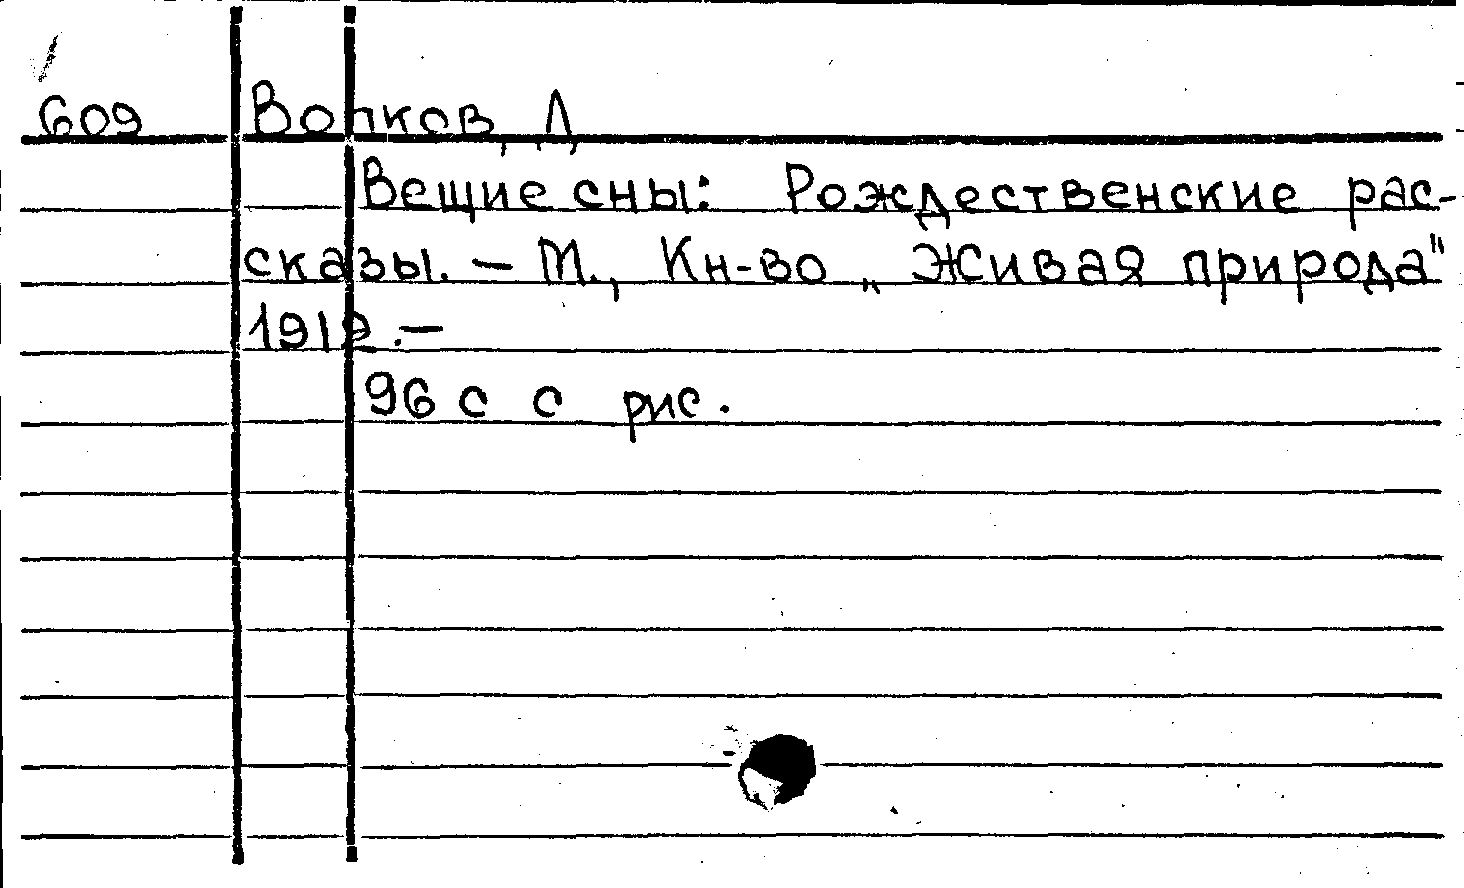 609 Волков, Д
Вещие сны: Рождественские рас-
сказы. – М., Кн-во „Живая природа"
1912. –
96 с с рис.